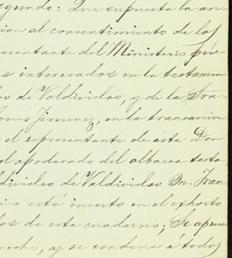 egundo: Que supuesta la an
cion el consentimiento de los
sentante del Ministerio pú
s interesados en la testamen
les de Valdivielso, y de la Tra
Jimenez, en la transaccion
el representante de ésta Don
el apoderado del albacea testa
ldivielso de Valdivielso Dn. Fran
ivo está inserto en el exhorto
los de este cuaderno; Se aprue
noche, y se condena á todos